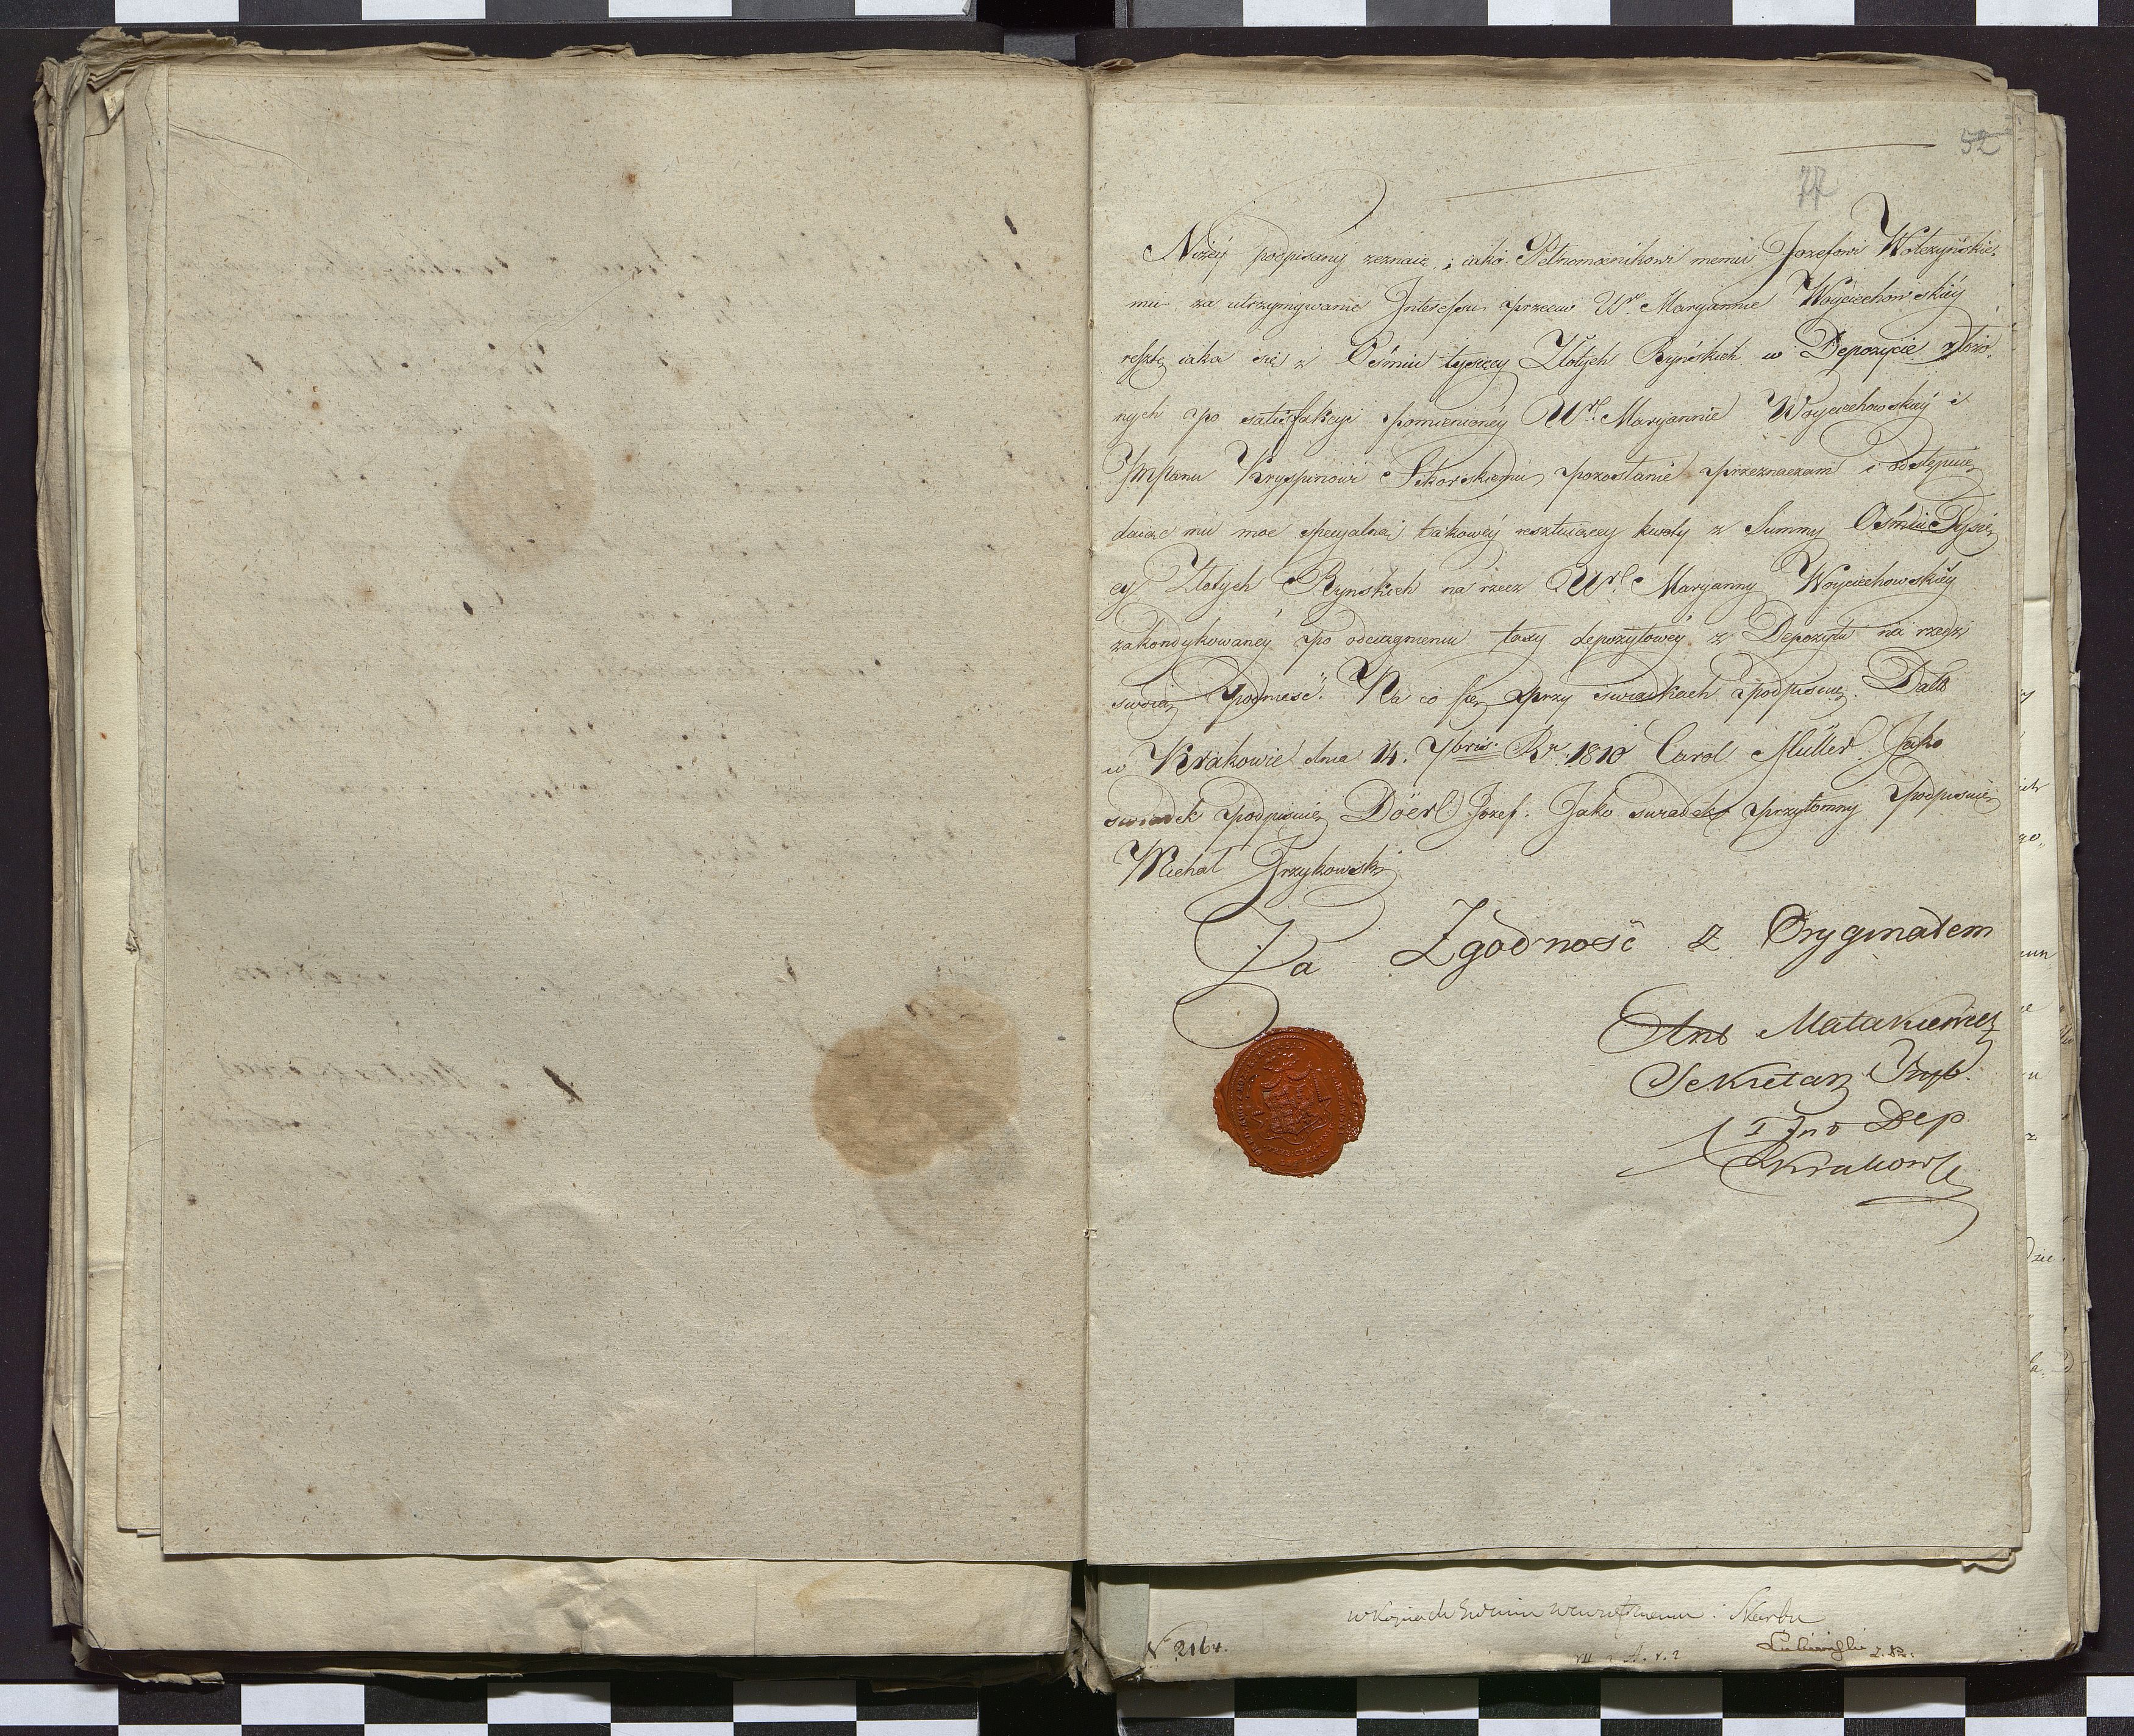 52
77
Niżey podpisany zeznaię, i iako Pełnomocnikowi memu Jozefowi Wolczyńskie„
mu za utrzymywanie Interessu przeciw Ur. Maryannie Woyciechowskiéy
resztę iaka się z Ośmiu tysięcy Złotych Ryńskich w Depozycie złożo„
nych po satisfakcyi pomienionéy Url. Maryannie Woyciechowskiéy i
JmPanu Kryspinowi Sikorskiemu pozostanie przeznaczam i odstępuię
daiąc mu moc specyalną takowéy resztuiącey kwoty z Summy Ośmiu Tysię„
cy Złotych Ryńskich na rzecz Url. Maryanny Woyciechowskiéy
zakondykowanéy po odciągnieniu taxy depozytowéy z Depozytu na rzecz
swoię podnieść. Na co się przy świadkach podpisuię. Datt
w Krakowie dnia 14. 7bris Rr. 1810 Carol Müller. Jako
swiadek podpisuię Döerl Jozef. Jako swiadek przytomny podpisuię
Michał Trzykowski
Za Zgodność z Oryginałem
Ant Matakiewicz
Sekretarz Tryb.
I Ins Dep
Krakows
N 2164.
Skarbu